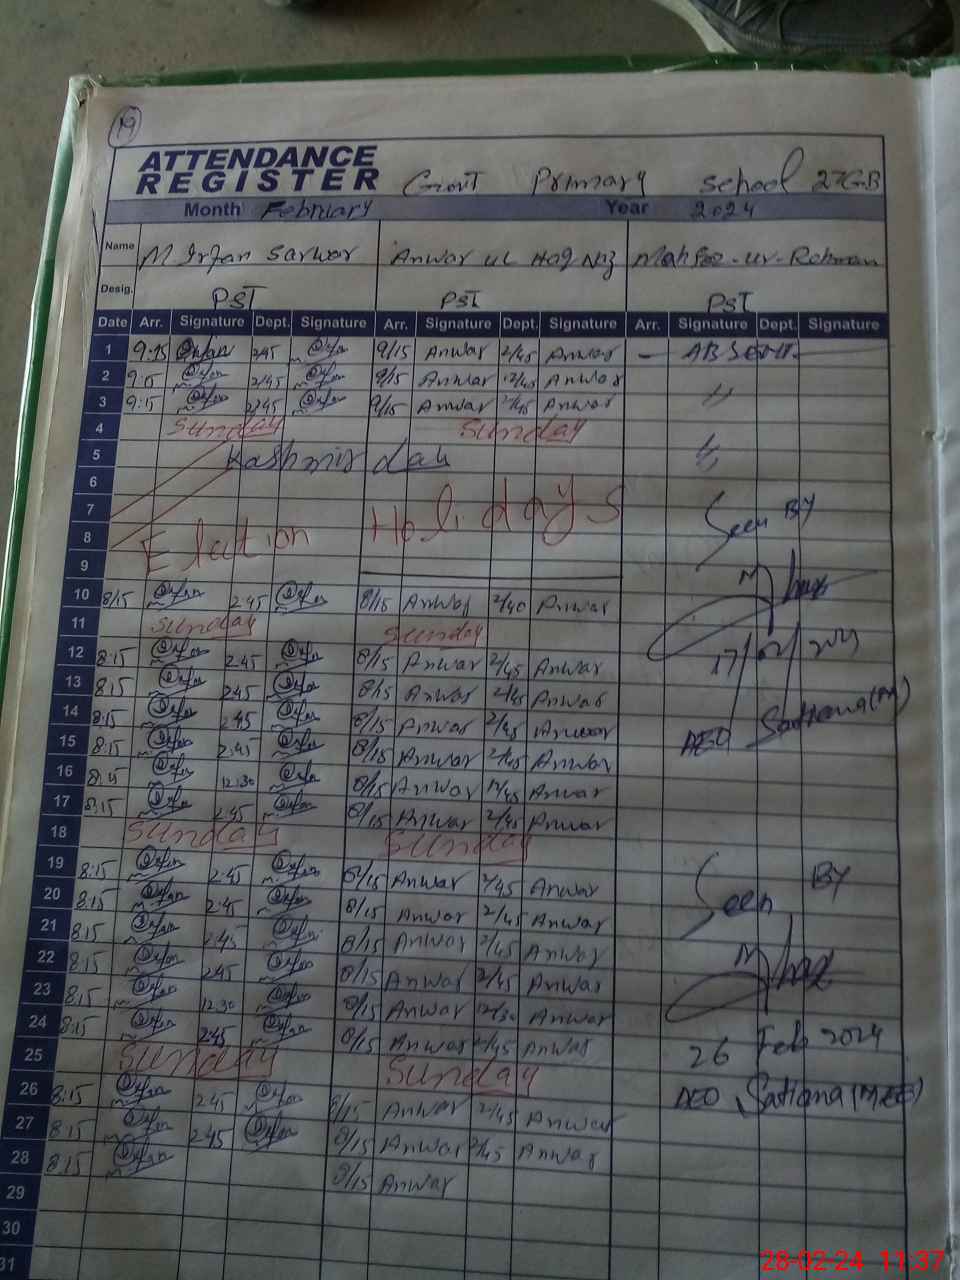 19
ATTENDANCE
REGISTER Govt Primary School 27GB
Month February Year 2024
Name M Irfan Sarwar Anwar ul Haq
Desig. PST PST PST
Date Arr. Signature Dept. Signature Arr. Signature Dept. Signature Arr. Signature Dept. Signature
1 9:15 Irfan 2:45 Irfan 9/15 Anwar 2/45 Anwar — ABSENT —
2 9:15 Irfan 2:45 Irfan 9/15 Anwar 12/45 Anwar "
3 9:15 Irfan 2:45 Irfan 9/15 Anwar 2/45 Anwar
4 Sunday Sunday
5 Kashmir
6
7
8 Elation Holidays Seen BY
9
10 8/15 Irfan 2:45 Irfan 8/15 Anwar 2/40 Anwar
11 Sunday Sunday
12 8:15 Irfan 2:45 Irfan 8/15 Anwar 2/45 Anwar 17/02/
13 8:15 Irfan 2:45 Irfan 8/15 Anwar 2/45 Anwar
14 8:15 Irfan 2:45 Irfan 8/15 Anwar 2/45 Anwar AEO Satiana (M)
15 8:15 Irfan 2:45 Irfan 8/15 Anwar 2/45 Anwar
16 8:15 Irfan 12:30 Irfan 8/15 Anwar 12/45 Anwar
17 8:15 Irfan 2:45 Irfan 8/15 Anwar 2/45 Anwar
18 Sunday Sunday
19 8:15 Irfan 2:45 Irfan 8/15 Anwar 2/45 Anwar Seen BY
20 8:15 Irfan 2:45 Irfan 8/15 Anwar 2/45 Anwar
21 8:15 Irfan 2:45 Irfan 8/15 Anwar 2/45 Anwar
22 8:15 Irfan 2:45 Irfan 8/15 Anwar 2/45 Anwar
23 8:15 Irfan 12:30 Irfan 8/15 Anwar 12/30 Anwar
24 8:15 Irfan 2:45 Irfan 8/15 Anwar 2/45 Anwar 26 Feb 2024
25 Sunday Sunday
26 8:15 Irfan 2:45 Irfan 8/15 Anwar 2/45 Anwar AEO Satiana
27 8:15 Irfan 2:45 Irfan 8/15 Anwar 2/45 Anwar
28 8:15 Irfan 8/15 Anwar
29
30
31
28-02-24 11:37